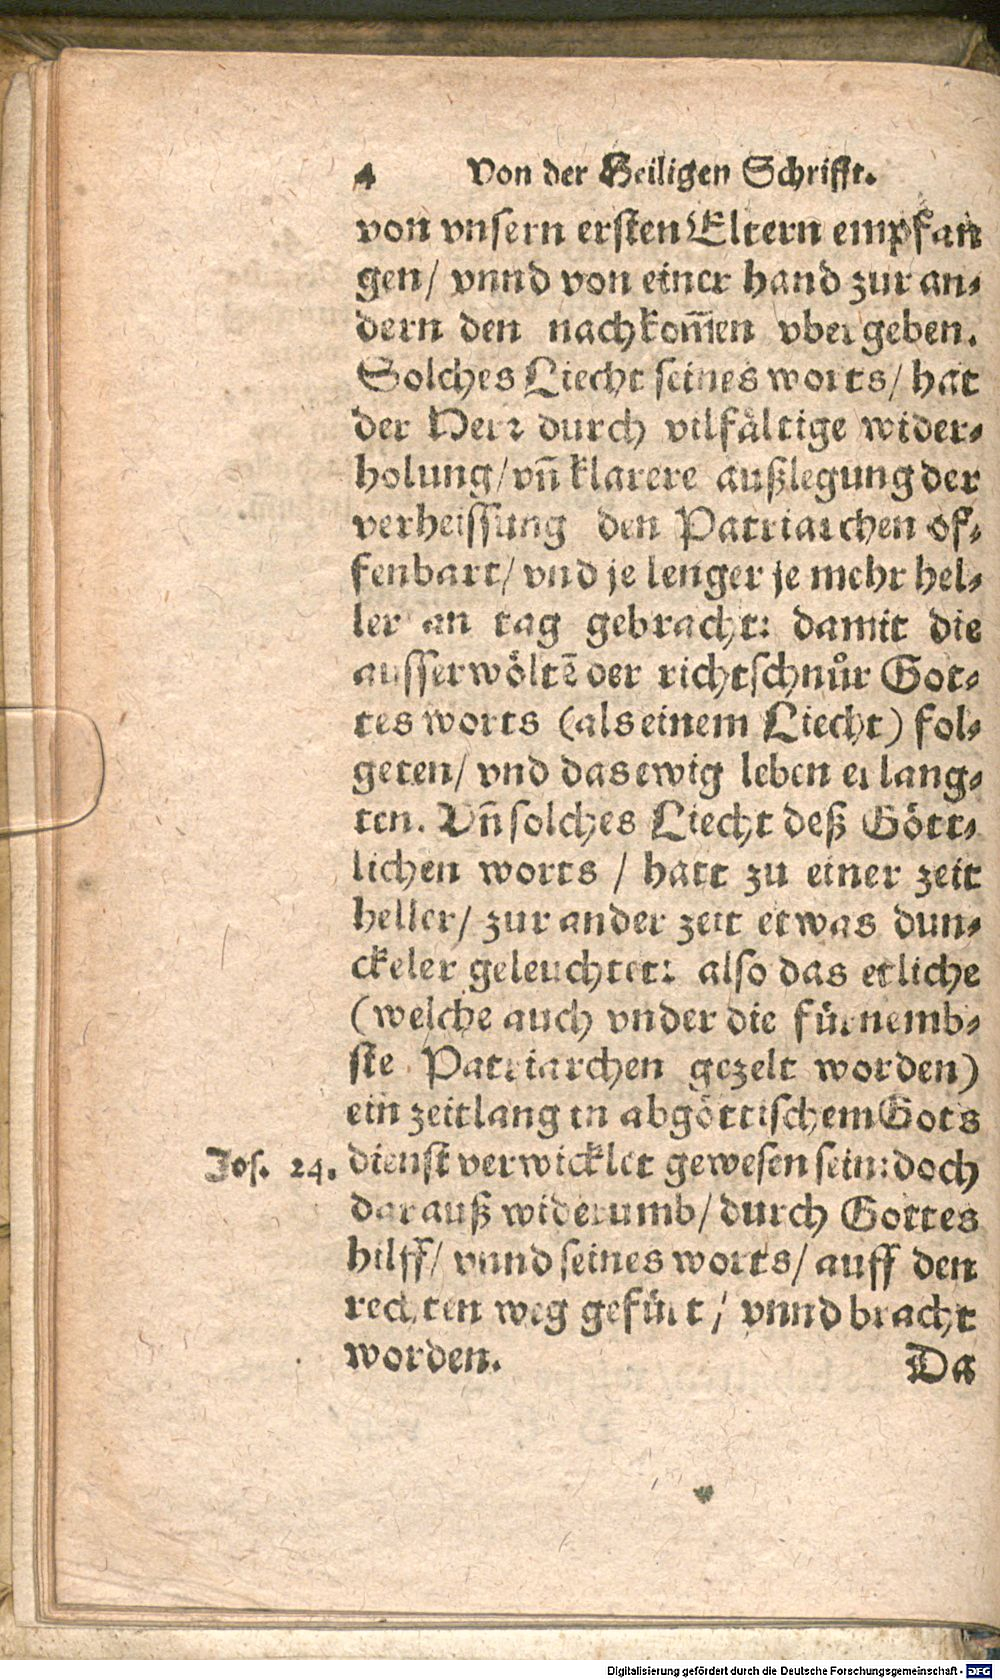 4 Von der Heiligen Schrifft.
von vnsern ersten Eltern empfan
gen/ vnnd von einer hand zur an⸗
dern den nachkom̃en vbergeben.
Solches Liecht seines worts/ hat
der Herr durch vilfältige wider⸗
holung/ vñ klarere außlegung der
verheissung den Patriarchen of⸗
fenbart/ vnd je lenger je mehr hel⸗
ler an tag gebracht: damit die
ausserwöltẽ der richtschnůr Got⸗
tes worts (als einem Liecht) fol⸗
geten/ vnd das ewig leben erlang⸗
ten. Vñ solches Liecht deß Gött⸗
lichen worts / hatt zu einer zeit
heller/ zur ander zeit etwas dun⸗
ckeler geleuchtet: also das etliche
(welche auch vnder die fürnemb⸗
ste Patriarchen gezelt worden)
ein zeitlang in abgöttischem Gots
Jos. 24. dienst verwicklet gewesen sein: doch
darauß widerumb/ durch Gottes
hilff/ vnnd seines worts/ auff den
rechten weg gefürt/ vnnd bracht
worden. Da
Digitalisierung gefördert durch die Deutsche Forschungsgemeinschaft - DFG